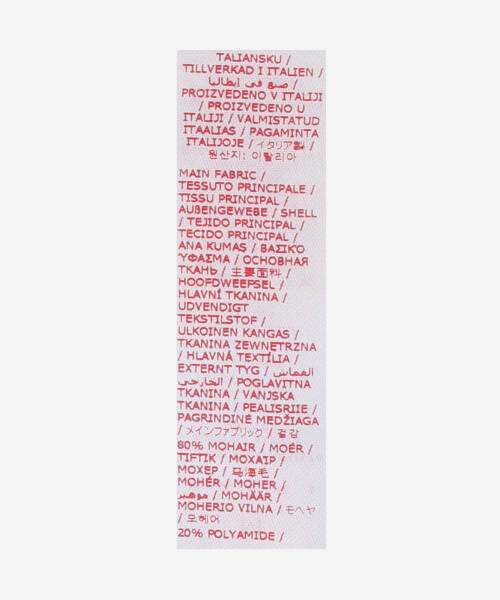 TALIANSKU /
TILLVERKAD I ITALIEN /
صنع في إيطاليا /
PROIZVEDENO V ITALIJI
/ PROIZVEDENO U
ITALIJI / VALMISTATUD
ITAALIAS / PAGAMINTA
ITALIJOJE / イタリア製 /
원산지: 이탈리아
MAIN FABRIC /
TESSUTO PRINCIPALE /
TISSU PRINCIPAL /
AUßENGEWEBE / SHELL
/ TEJIDO PRINCIPAL /
TECIDO PRINCIPAL /
ANA KUMAŞ / ΒΑΣΙΚΌ
ΎΦΑΣΜΑ / ОСНОВНАЯ
ТКАНЬ / 主要面料 /
HOOFDWEEFSEL /
HLAVNÍ TKANINA /
UDVENDIGT
TEKSTILSTOF /
ULKOINEN KANGAS /
TKANINA ZEWNĘTRZNA
/ HLAVNÁ TEXTÍLIA /
EXTERNT TYG / القماش
الخارجي / POGLAVITNA
TKANINA / VANJSKA
TKANINA / PEALISRIIE /
PAGRINDINĖ MEDŽIAGA
/ メインファブリック / 겉감
80% MOHAIR / MOÉR /
TIFTIK / ΜΟΧΑΙΡ /
МОХЕР / 马海毛 /
MOHÉR / MOHER /
موهير / MOHÄÄR /
MOHERIO VILNA / モヘヤ
/ 모헤어
20% POLYAMIDE /